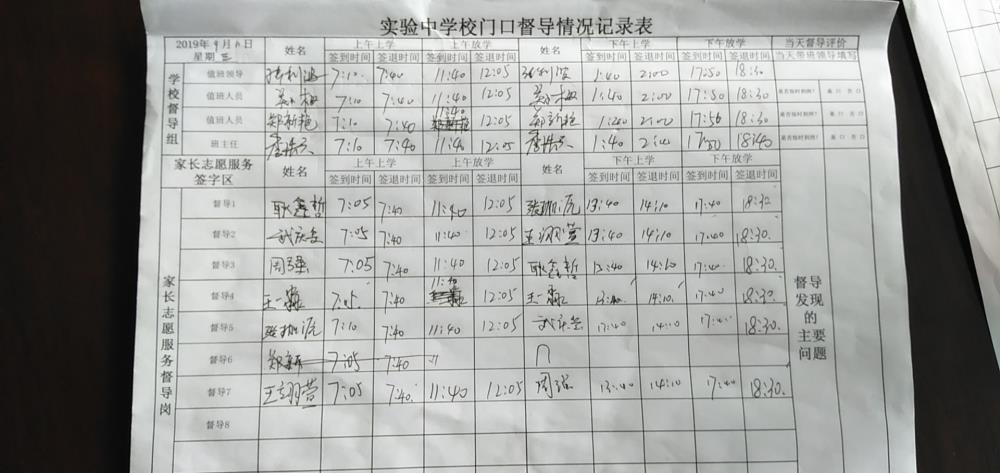 实验中学校门口督导情况记录表
2019年9月11日 星期三 姓名 上午上学 上午放学 姓名 下午上学 下午放学 当天督导评价
签到时间 签退时间 签到时间 签退时间 签到时间 签退时间 签到时间 签退时间 当天带班领导填写
学校督导组
值班领导 7:10 7:40 11:40 12:05 1:40 2:00 17:50 18:30
值班人员 7:10 7:40 11:40 12:05 1:40 2:00 17:50 18:30 是否按时到岗? 是 口 否 口
值班人员 郑新艳 7:10 7:40 11:40 12:05 郑新艳 2:00 17:50 18:30 是否按时到岗? 是 口 否 口
班主任 7:10 7:40 11:40 12:05 1:40 2:00 18:40 是否按时到岗? 是 口 否 口
家长志愿服务签字区 姓名 上午上学 上午放学 姓名 下午上学 下午放学
签到时间 签退时间 签到时间 签退时间 签到时间 签退时间 签到时间 签退时间
家长志愿服务督导岗
督导1 耿鑫哲 7:05 7:40 11:40 12:05 13:40 14:10 17:40 18:30
督导2 7:05 7:40 11:40 12:05 王翊萱 13:40 14:10 17:40 18:30.
督导3 周强 7:05 7:40 11:40 12:05 耿鑫哲 13:40 14:10 17:40 18:30.
督导4 王一淼 7:05 7:40 11:40 12:05 王一淼 13:40 14:10. 17:40 18:30.
督导5 7:10 7:40 11:40 12:05 14:10 17:40 18:30.
督导6 郑新 7:05 7:40 11
督导7 王翊萱 7:05 7:40. 11:40 12:05 周强 13:40 14:10 17:40 18:30.
督导8
督导发现的主要问题